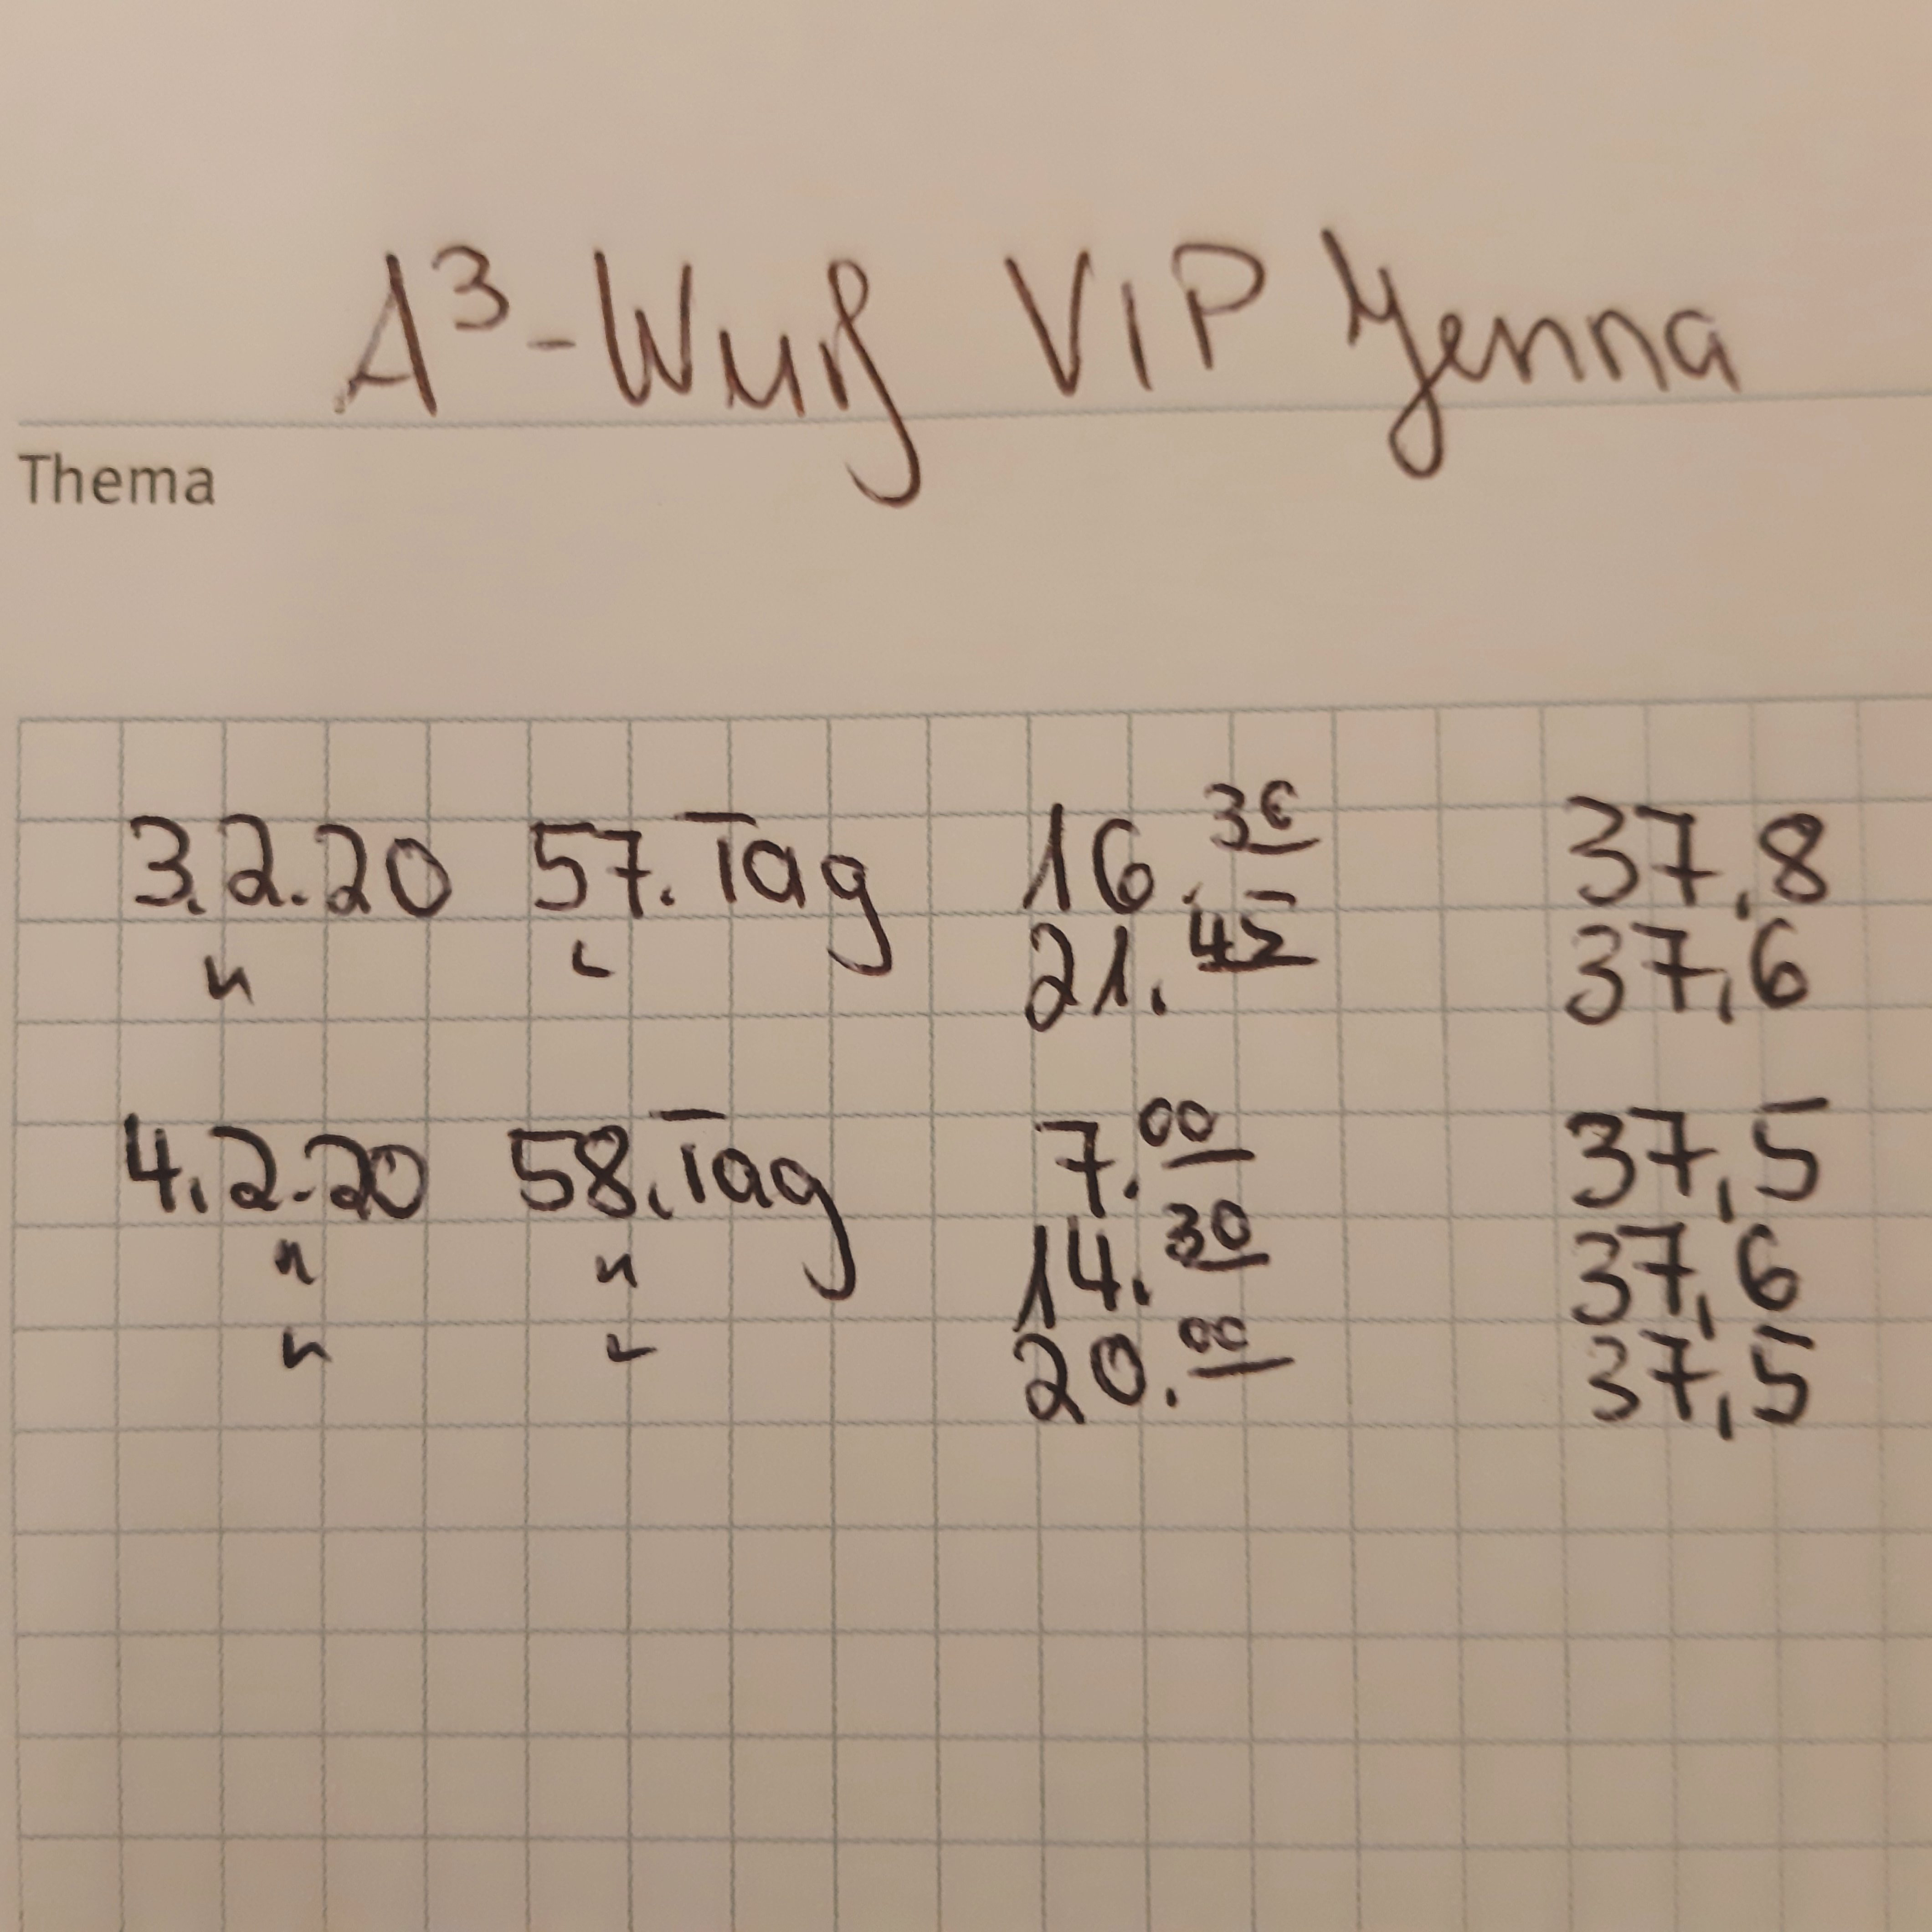 A³-Wurf VIP Yenna
Thema
3.2.20 57.Tag 16.30 37,8
" " 21.45 37,6
4.2.20 58.Tag 7.00 37,5
" " 14.30 37,6
" " 20.00 37,5